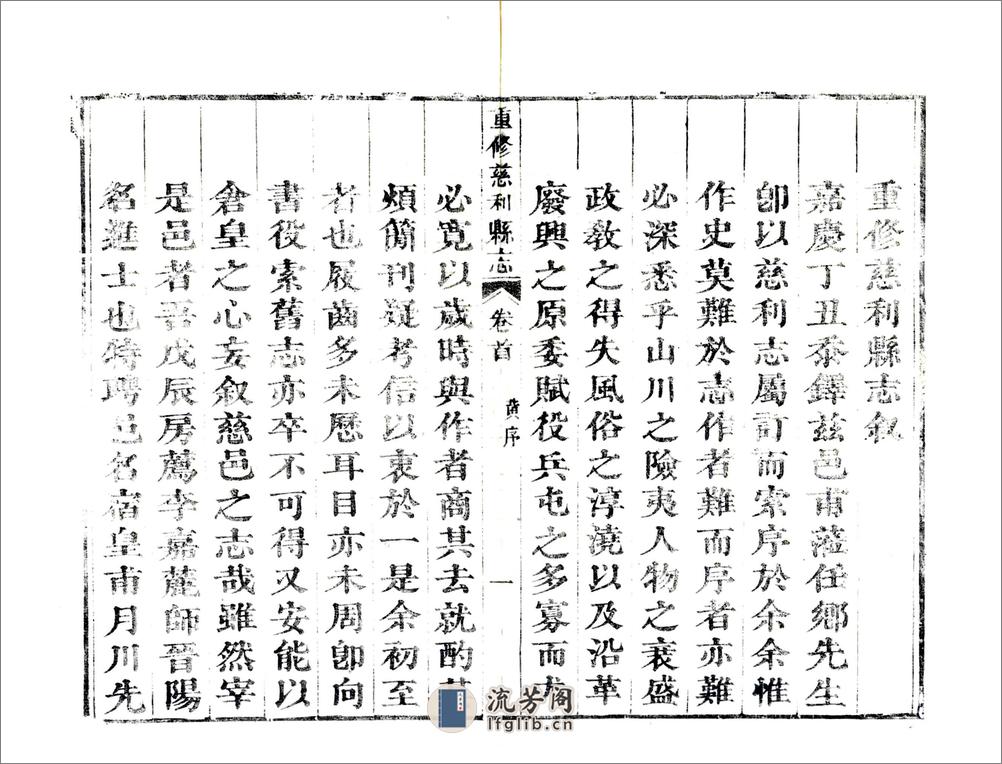 重修慈利縣志叙
嘉慶丁丑忝鐸兹邑甫蒞任鄉先生
卽以慈利志屬訂而索序於余余惟
作史莫難於志作者難而序者亦難
必深悉乎山川之險夷人物之衰盛
政敎之得失風俗之淳澆以及沿革
廢興之原委賦役兵屯之多寡而尤
重修慈利縣志
卷首
黄序
一
必寛以歲時與作者商其去就酌其
煩簡刊疑考信以衷於一是余初至
者也履齒多未歷耳目亦未周卽向
書役索舊志亦卒不可得又安能以
倉皇之心妄叙慈邑之志哉雖然宰
是邑者吾戊辰房薦李嘉麓師晉陽
名進士也特聘邑名宿皇甫月川先
流芳阁
lfglib.cn